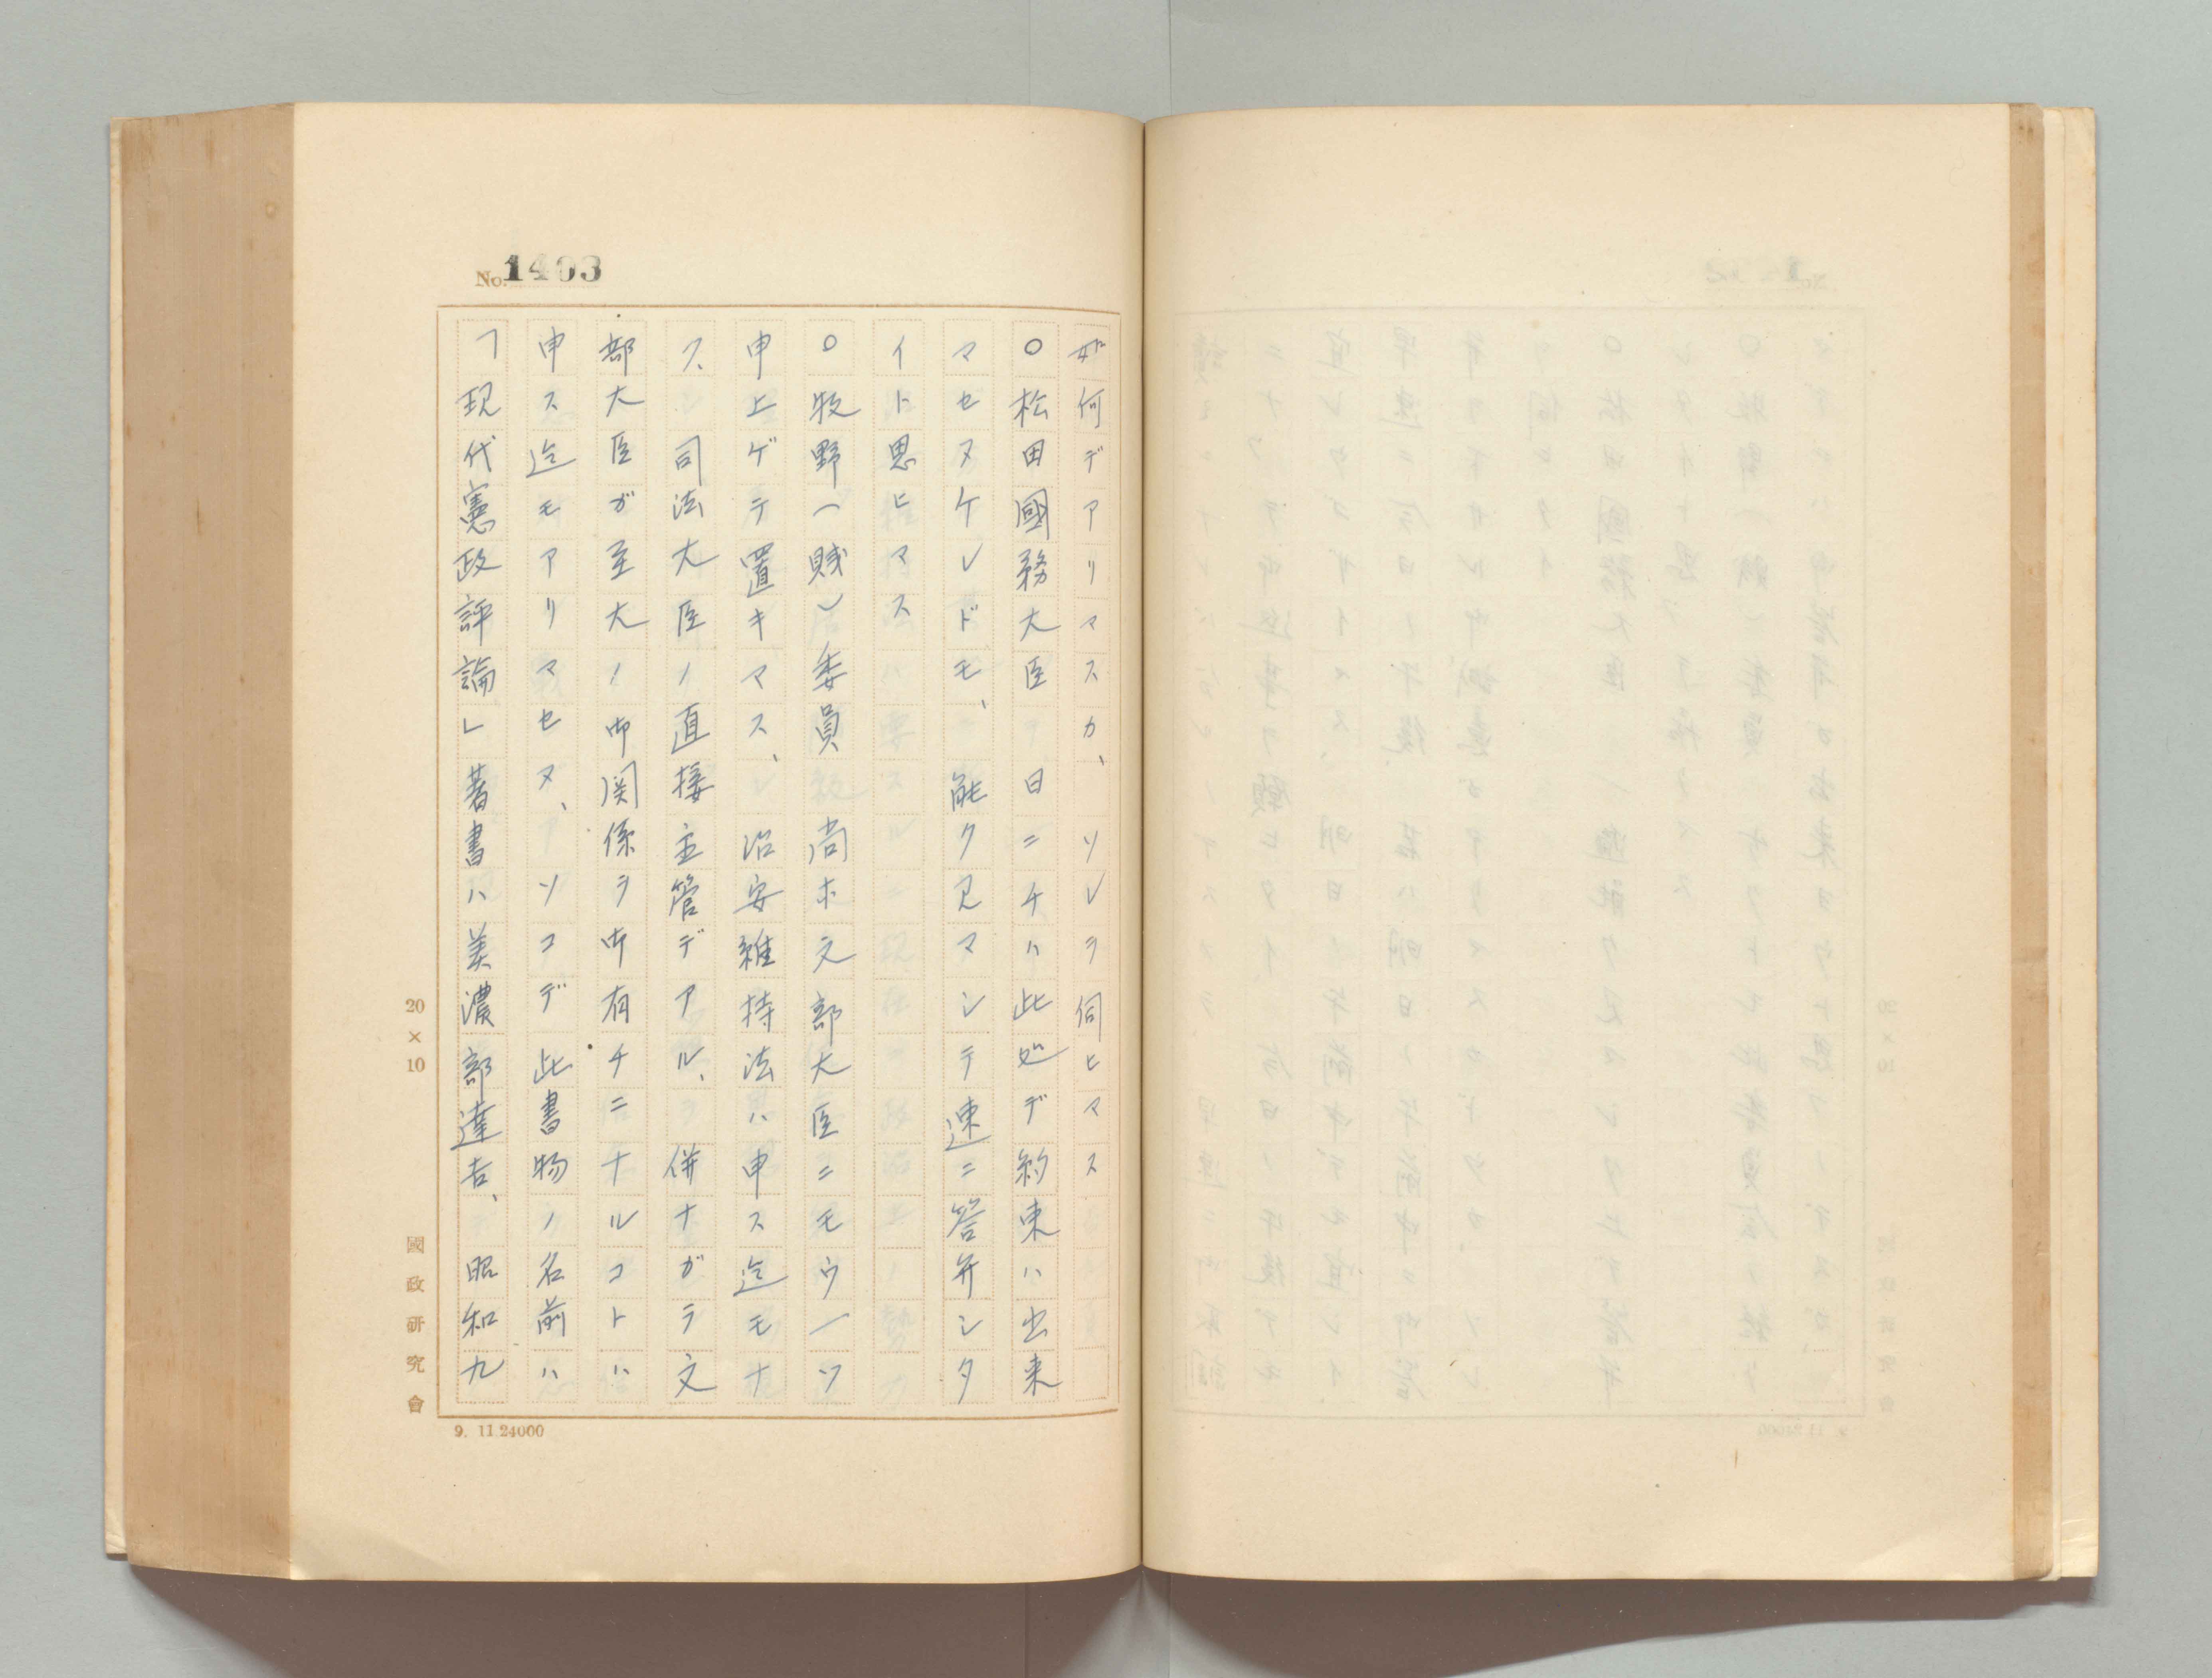 No. 1403
ガ何デアリマスカ、ソレヲ伺ヒマス
○松田國務大臣 日ニチハ此処デ約束ハ出来
マセヌケレドモ、能ク見マシテ速ニ答弁シタ
イト思ヒマス
○牧野(賤)委員 尚ホ文部大臣ニモウ一ツ
申上ゲテ置キマス、治安維持法ハ申ス迄モナ
ク、司法大臣ノ直接主管デアル、併ナガラ文
部大臣ガ至大ノ御関係ヲ御有チニナルコトハ
申ス迄モアリマセヌ、ソコデ此書物ノ名前ハ
「現代憲政評論」著書ハ美濃部達吉、昭和九
20×10
國政研究會
9. 11.24000